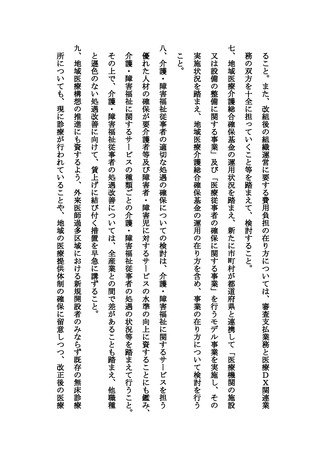 ること。また、改組後の組織運営に要する費用負担の在り方については、審査支払業務と医療ＤＸ関連業
務の双方を十全に担っていくこと等を踏まえて、検討すること。
七、地域医療介護総合確保基金の運用状況を踏まえ、新たに市町村が都道府県と連携して「医療機関の施設
又は設備の整備に関する事業」及び「医療従事者の確保に関する事業」を行うモデル事業を実施し、その
実施状況を踏まえ、地域医療介護総合確保基金の運用の在り方を含め、事業の在り方について検討を行う
こと。
八、介護・障害福祉従事者の適切な処遇の確保についての検討は、介護・障害福祉に関するサービスを担う
優れた人材の確保が要介護者等及び障害者・障害児に対するサービスの水準の向上に資することにも鑑み、
介護・障害福祉に関するサービスの種類ごとの介護・障害福祉従事者の処遇の状況等を踏まえて行うこと。
その上で、介護・障害福祉従事者の処遇改善については、全産業との間で差があることも踏まえ、他職種
と遜色のない処遇改善に向けて、賃上げに結び付く措置を早急に講ずること。
九、地域医療構想の推進にも資するよう、外来医師過多区域における新規開設者のみならず既存の無床診療
所についても、現に診療が行われていることや、地域の医療提供体制の確保に留意しつつ、改正後の医療